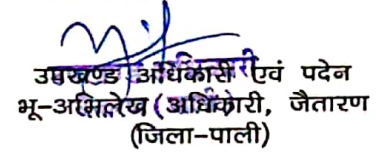 उपखण्ड अधिकारी एवं पदेन
भू-अभिलेख अधिकारी, जैतारण
(जिला-पाली)